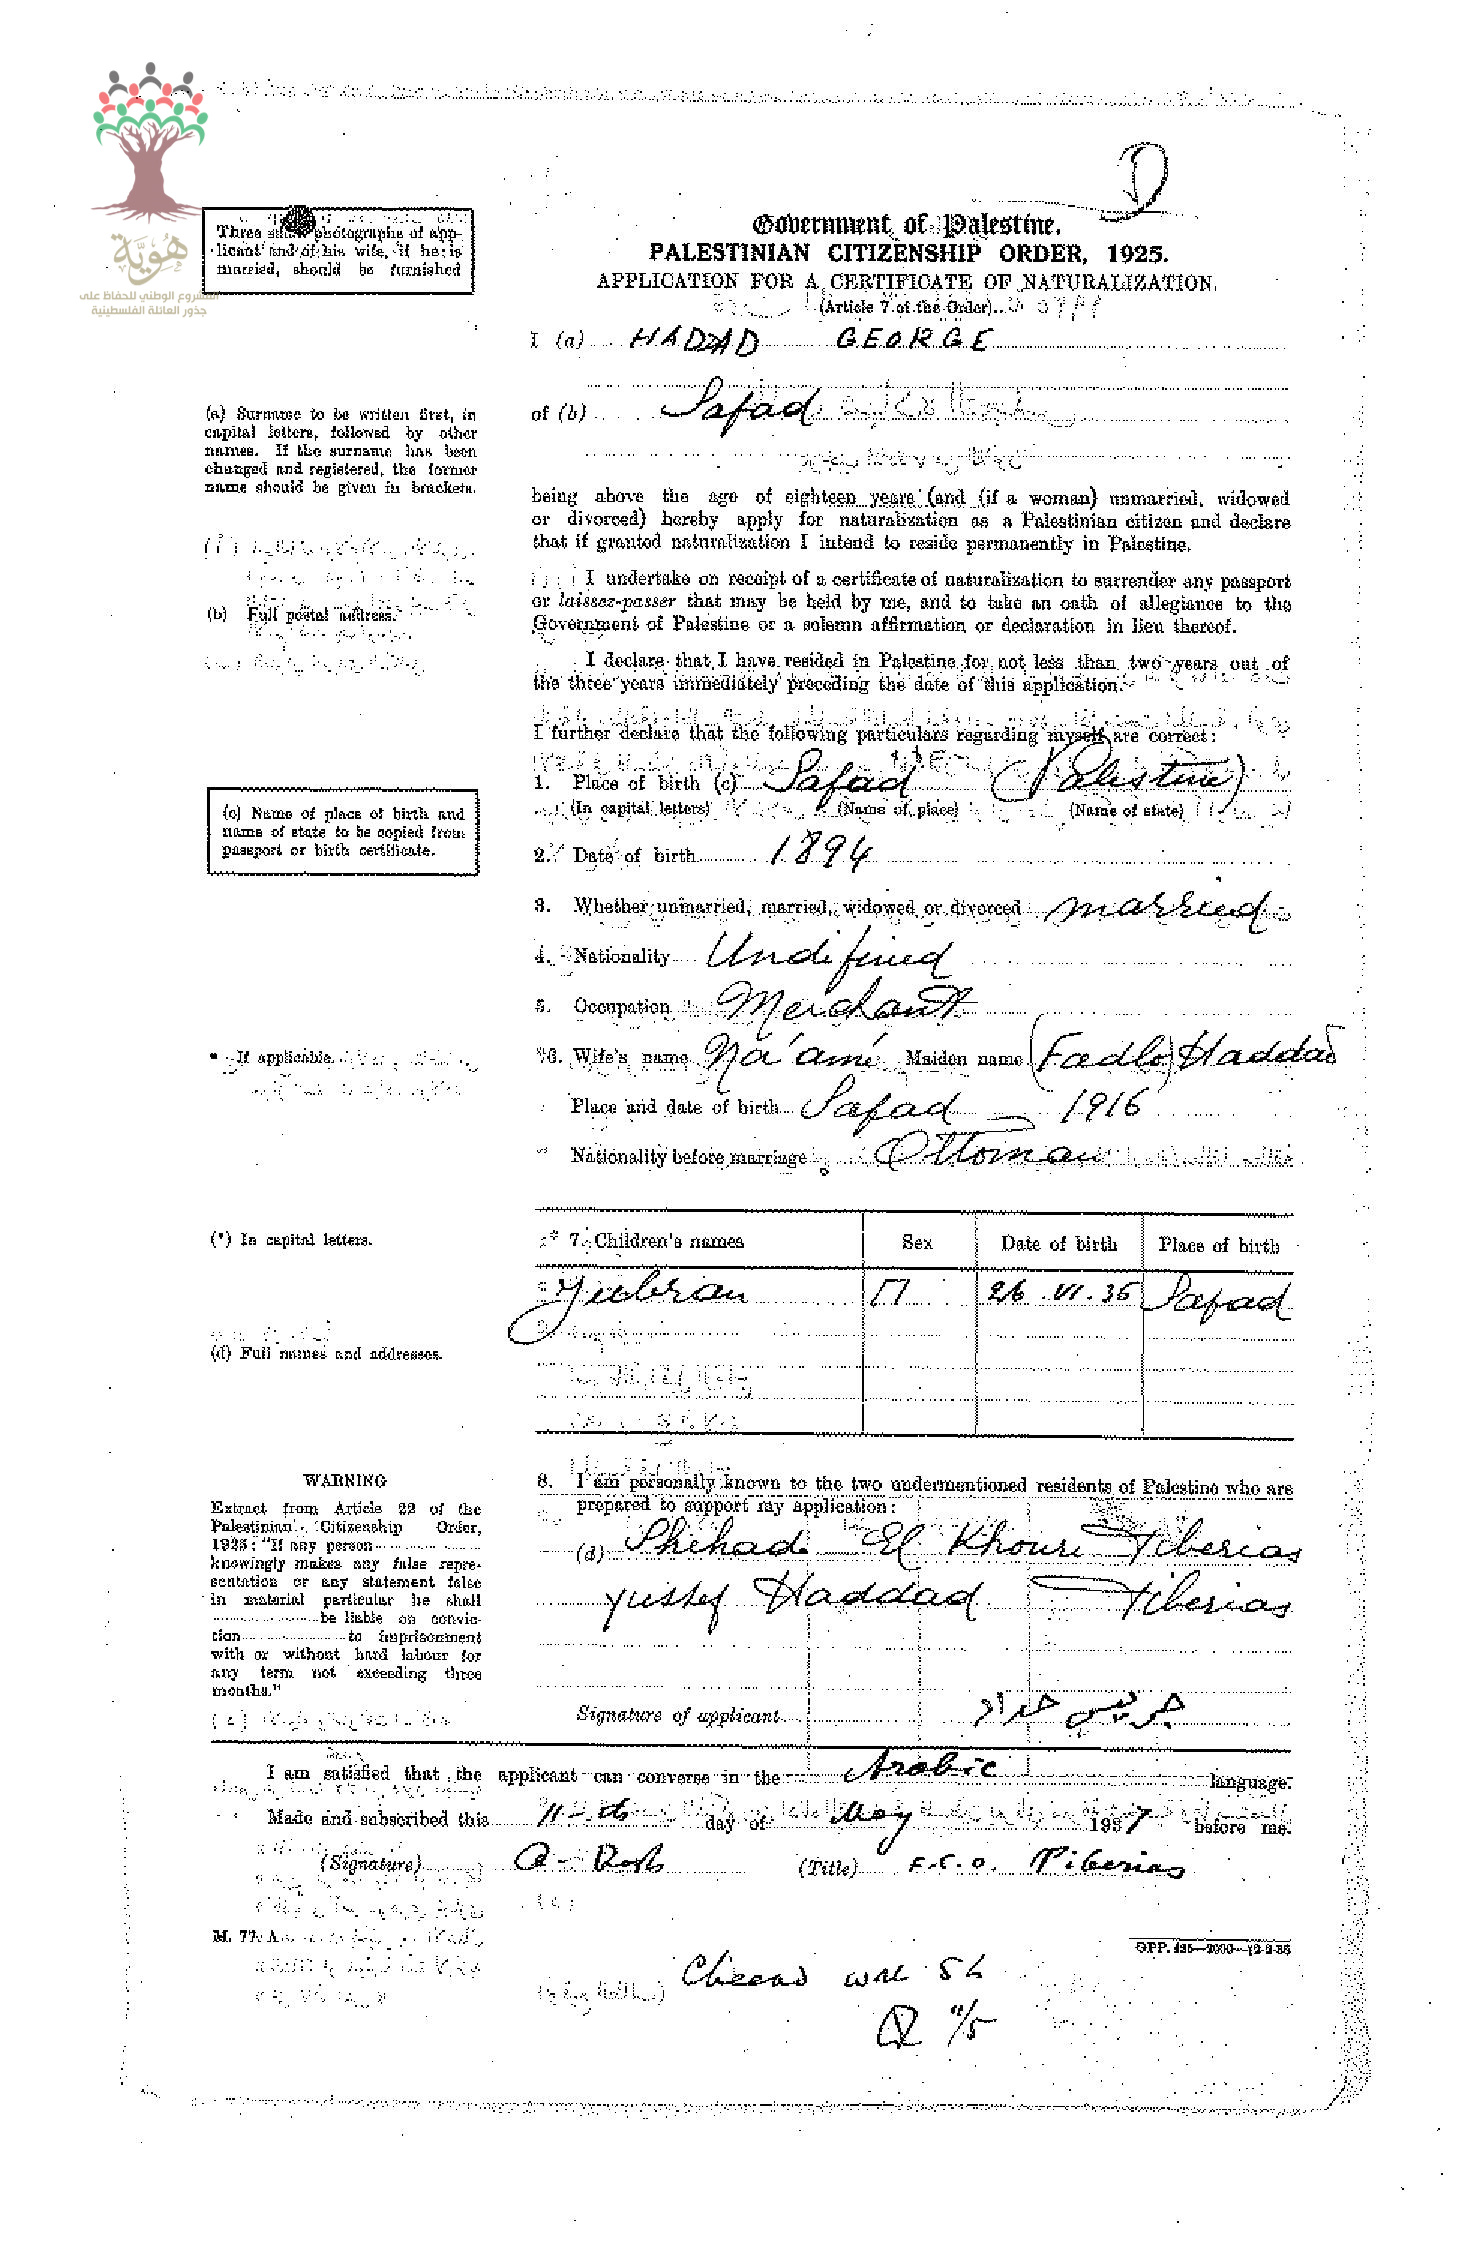 هُوِيَّة
المشروع الوطني للحفاظ على
جذور العائلة الفلسطينية
Three small photographs of app-
licant and of his wife, if he is
married, should be furnished
Government of Palestine.
PALESTINIAN CITIZENSHIP ORDER, 1925.
APPLICATION FOR A CERTIFICATE OF NATURALIZATION.
(Article 7 of the Order)
I (a) HADDAD GEORGE
(a) Surname to be written first, in
capital letters, followed by other
names. If the surname has been
changed and registered, the former
name should be given in brackets.
of (b) Safad
being above the age of eighteen years (and (if a woman) unmarried, widowed
or divorced) hereby apply for naturalization as a Palestinian citizen and declare
that if granted naturalization I intend to reside permanently in Palestine.
(b) Full postal address.
I undertake on receipt of a certificate of naturalization to surrender any passport
or laissez-passer that may be held by me, and to take an oath of allegiance to the
Government of Palestine or a solemn affirmation or declaration in lieu thereof.
I declare that I have resided in Palestine for not less than two years out of
the three years immediately preceding the date of this application.
I further declare that the following particulars regarding myself are correct:
1. Place of birth (c) Safad (Palestine)
(In capital letters) (Name of place) (Name of state)
(c) Name of place of birth and
name of state to be copied from
passport or birth certificate.
2. Date of birth 1894
3. Whether unmarried, married, widowed or divorced married
4. Nationality Undifined
5. Occupation Merchant
* If applicable.
*6. Wife's name Na'ami Maiden name (Fadlo) Haddad
Place and date of birth Safad — 1916
Nationality before marriage Ottoman
(*) In capital letters.
* 7. Children's names Sex Date of birth Place of birth
Jubran M 26.VI.36 Safad
(d) Full names and addresses.
8. I am personally known to the two undermentioned residents of Palestine who are
prepared to support my application:
(d) Shihadi El Khouri Tiberias
Yussef Haddad Tiberias
WARNING
Extract from Article 22 of the
Palestinian Citizenship Order,
1925: "If any person
knowingly makes any false repre-
sentation or any statement false
in material particular he shall
be liable on convic-
tion to imprisonment
with or without hard labour for
any term not exceeding three
months."
Signature of applicant جريس حداد
I am satisfied that the applicant can converse in the Arabic language.
Made and subscribed this 11-th day of May 1937 before me.
(Signature) (Title) Tiberias
M. 77. A
GPP. 435—2000—12-2-36
11/5